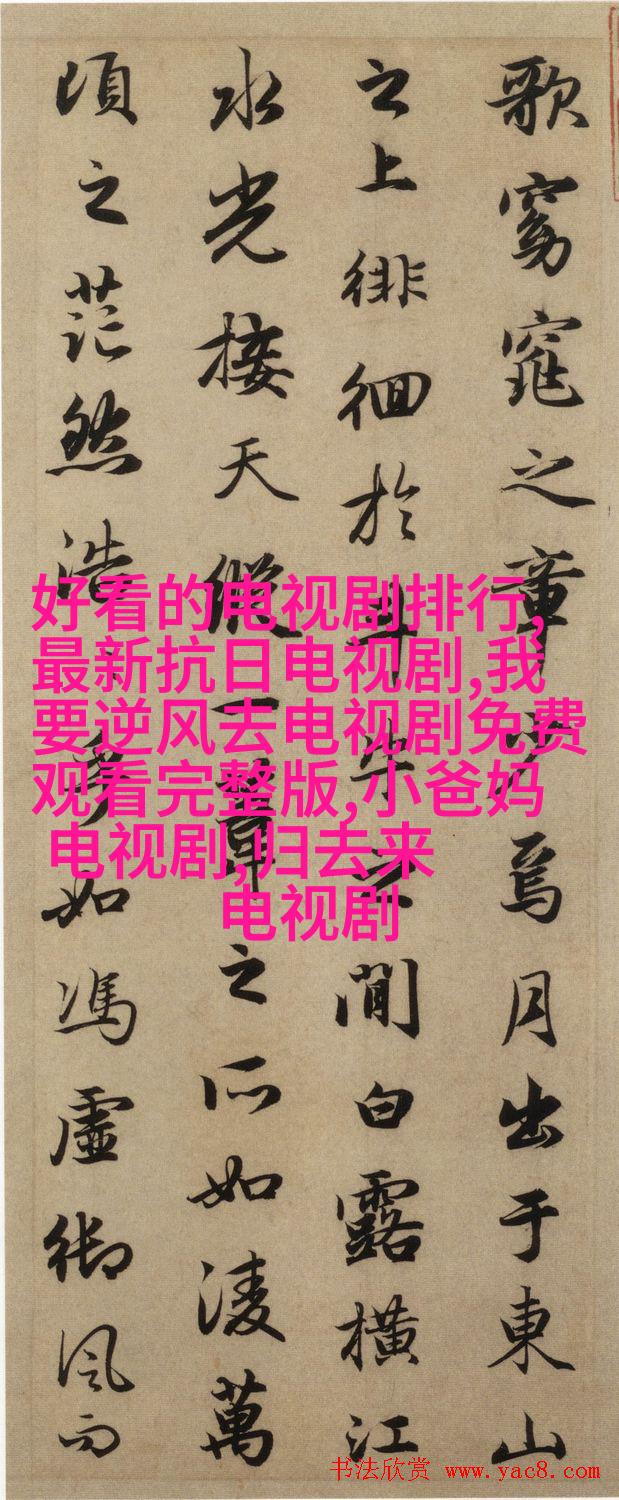 歌窈窕之章少焉月出于東山
之上徘徊於斗牛之間白露橫江
水光接天縱一葦之所如淩萬
頃之茫然浩乎如馮虛御風而
好看的电视剧排行,
最新抗日电视剧,我
要逆风去电视剧免费
观看完整版,小爸妈
电视剧,归去来
电视剧
书法欣赏 www.yac8.com